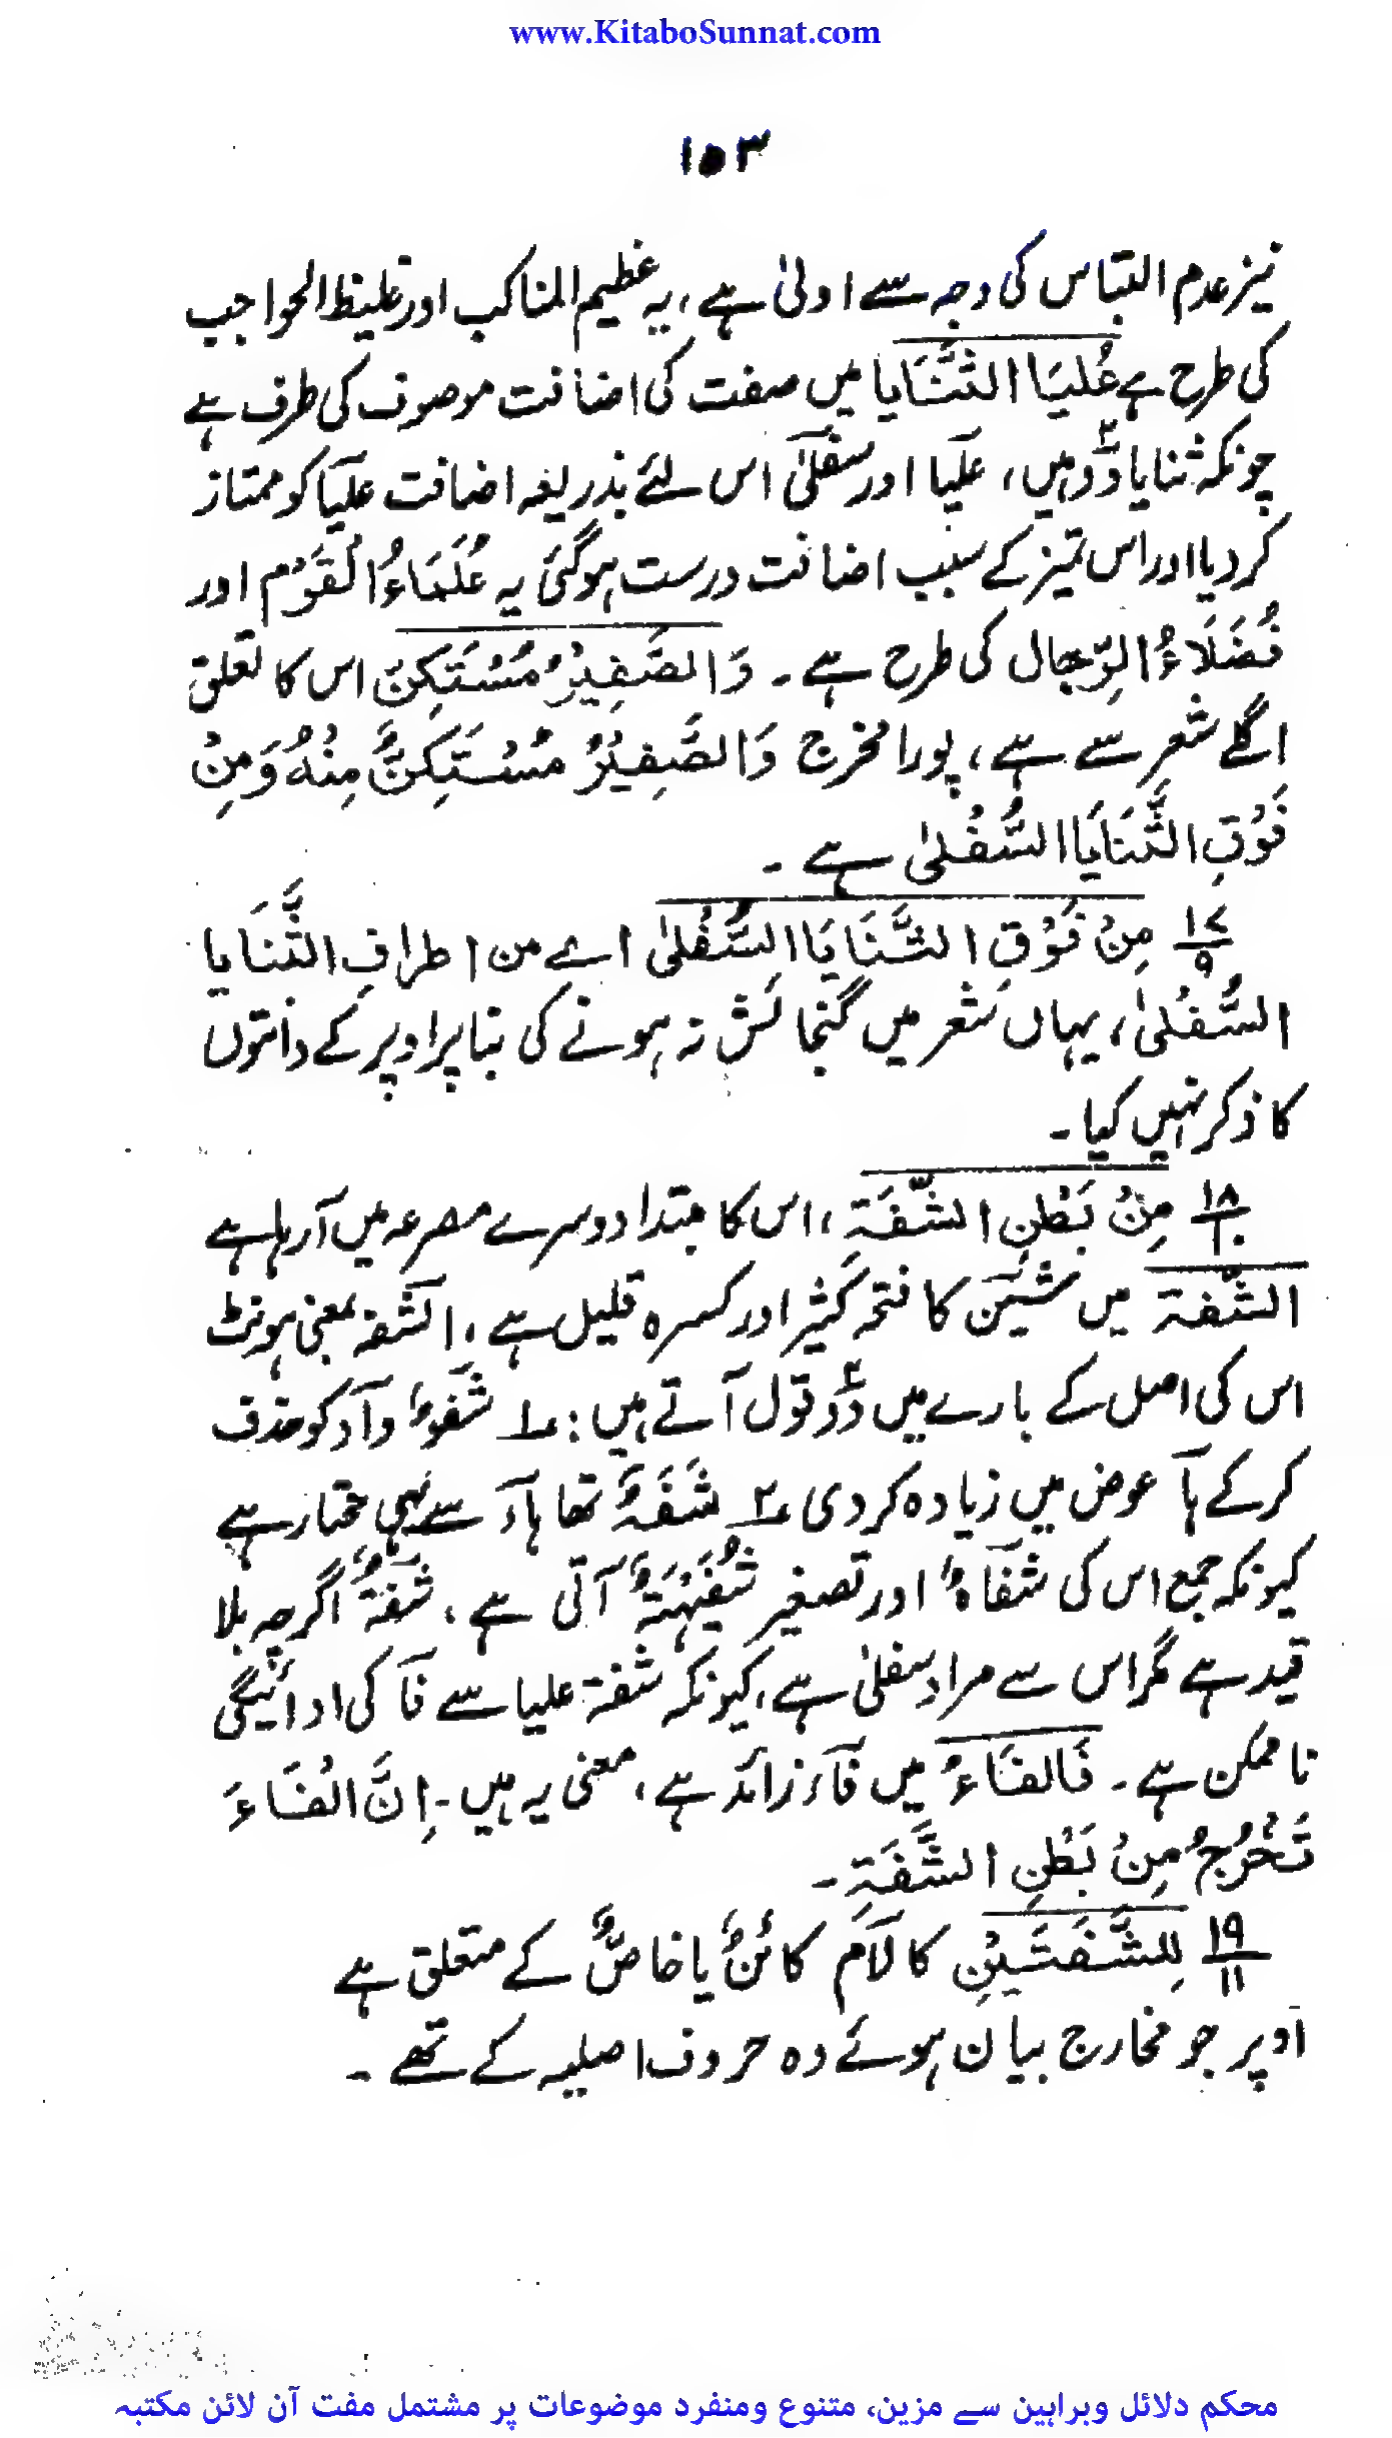 www.KitaboSunnat.com
۱۵۳
نیز عدم التباس کی وجہ سے اولیٰ ہے، یہ عظیم المناکب اور غلیظ الحواجب
کی طرح ہے عُلیَا الثَّنَایا میں صفت کی اضافت موصوف کی طرف ہے
چونکہ ثنایا دو۲ ہیں، علیا اور سفلیٰ اس لئے بذریعہ اضافت علیا کو ممتاز
کر دیا اور اس تمیز کے سبب اضافت درست ہوگئی یہ عُلَمَاءُ الْقَوْمِ اور
فُضَلَاءُ الرِّجال کی طرح ہے۔ وَالصَّفِیْرُ مُسْتَکِنّ اس کا تعلق
اگلے شعر سے ہے، پورا مخرج وَالصَّفِیْرُ مُسْتَکِنٌّ مِنْہُ وَمِنْ
فَوْقِ الثَّنَایَا السُّفْلیٰ ہے۔
۱۷/۹ مِنْ فَوْقِ الثَّنَایَا السُّفْلیٰ اے من اطرافِ الثَّنَایا
السُّفْلیٰ، یہاں شعر میں گنجائش نہ ہونے کی بنا پر اوپر کے دانتوں
کا ذکر نہیں کیا۔
۱۸/۱۰ مِنْ بَطْنِ الشَّفَۃِ، اس کا مبتدا دوسرے مصرعہ میں آرہا ہے
الشَّفۃ میں شین کا فتحہ کثیر اور کسرہ قلیل ہے، الشفہ بمعنی ہونٹ
اس کی اصل کے بارے میں دو۲ قول آتے ہیں: ۱؎ شَفَوٌ وآو کو حذف
کر کے ہآ عوض میں زیادہ کردی ۲؎ شَفَہٌ تھا ہآء سے یہی مختار ہے
کیونکہ جمع اس کی شفَاہٌ اور تصغیر شُفَیْہَۃٌ آتی ہے، شَفَۃٌ اگرچہ بلا
قید ہے مگر اس سے مراد سفلیٰ ہے، کیونکہ شفۃ علیا سے فآ کی ادائیگی
ناممکن ہے۔ فَالفَاءُ میں فآء زائد ہے، معنی یہ ہیں۔ اِنَّ الْفَاءَ
تَخْرُجُ مِنْ بَطْنِ الشَّفَۃِ۔
۱۹/۱۱ لِلشَّفَتَیْنِ کا لاَم کائنٌ یا خاصٌّ کے متعلق ہے
اوپر جو مخارج بیان ہوئے وہ حروف اصلیہ کے تھے۔
محکم دلائل وبراہین سے مزین، متنوع ومنفرد موضوعات پر مشتمل مفت آن لائن مکتبہ